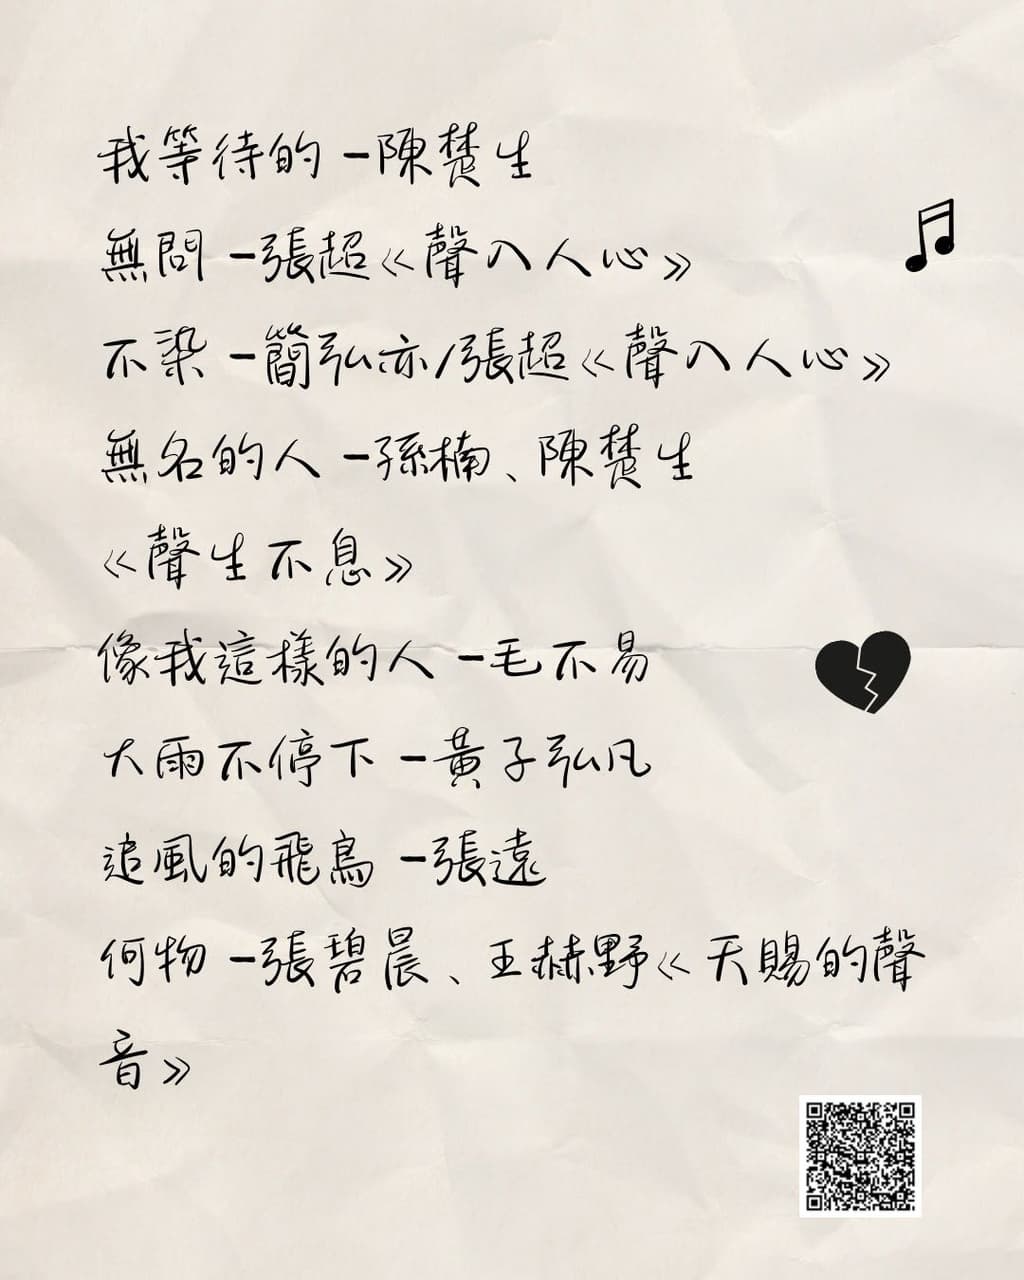 我等待的 -陳楚生
無問 -張超《聲入人心》
不染 -簡弘亦/張超《聲入人心》
無名的人 -孫楠、陳楚生
《聲生不息》
像我這樣的人 -毛不易
大雨不停下 -黃子弘凡
追風的飛鳥 -張遠
何物 -張碧晨、王赫野《天賜的聲
音》